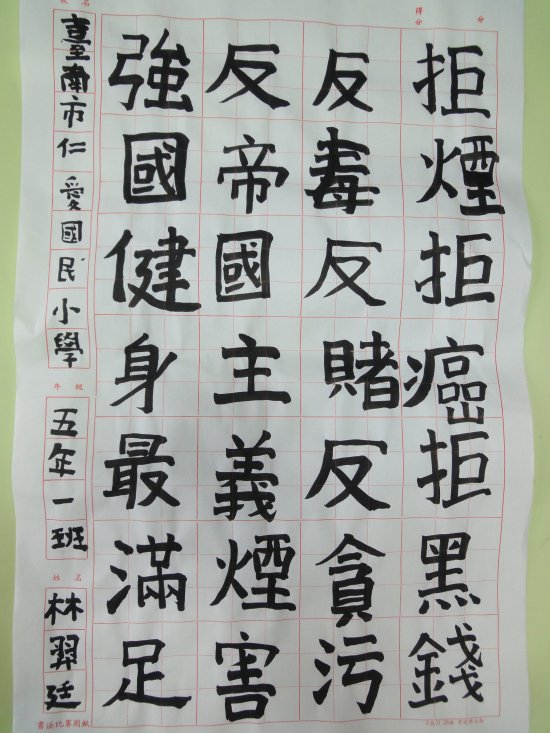 拒煙拒癌拒黑錢
反毒反賭反貪污
反帝國主義煙害
強國健身最滿足
臺南市仁愛國民小學
年級
五年一班
姓名
林羿廷
得分
分
書法比賽用紙